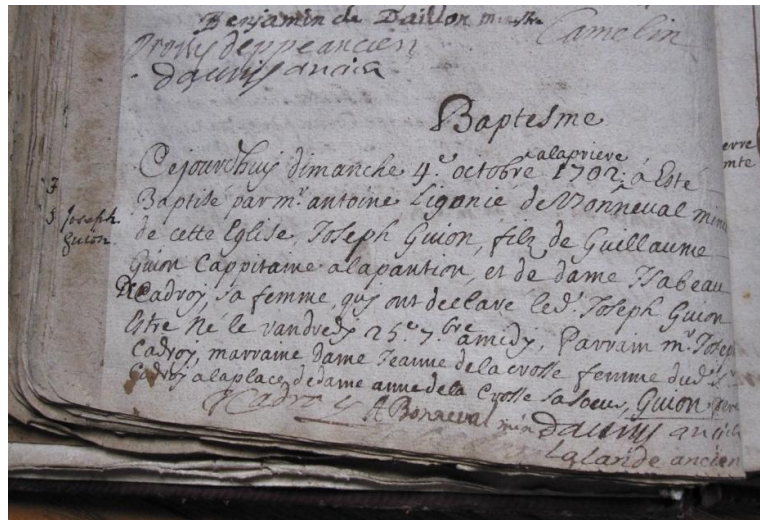 Benjamin de Daillon
Camelin
ancien
dauriss ancien
Baptesme
Cejourdhuy dimanche 4.e octobre alapriere 1702. á Esté
Baptisé par mr. antoine Ligonie de Bonneval mini
de cette Eglise, Joseph Guion, filz de Guillaume
Guion Cappitaine alapantion, et de dame Isabeau
De Cadroy, sa femme, quy ont declaré led. Joseph Guion
Estre Né le vandredy 25.e 7.bre amidy, Parrain mr. Joseph
Cadroy, marraine dame Jeanne delacrosse femme dud. Sr.
Cadroy alaplace dedame anne dela Crosse sasoeur, Guion pere
J Cadroy A Bonneval min dauriss ancien
Lalande ancien
J Joseph
Guion